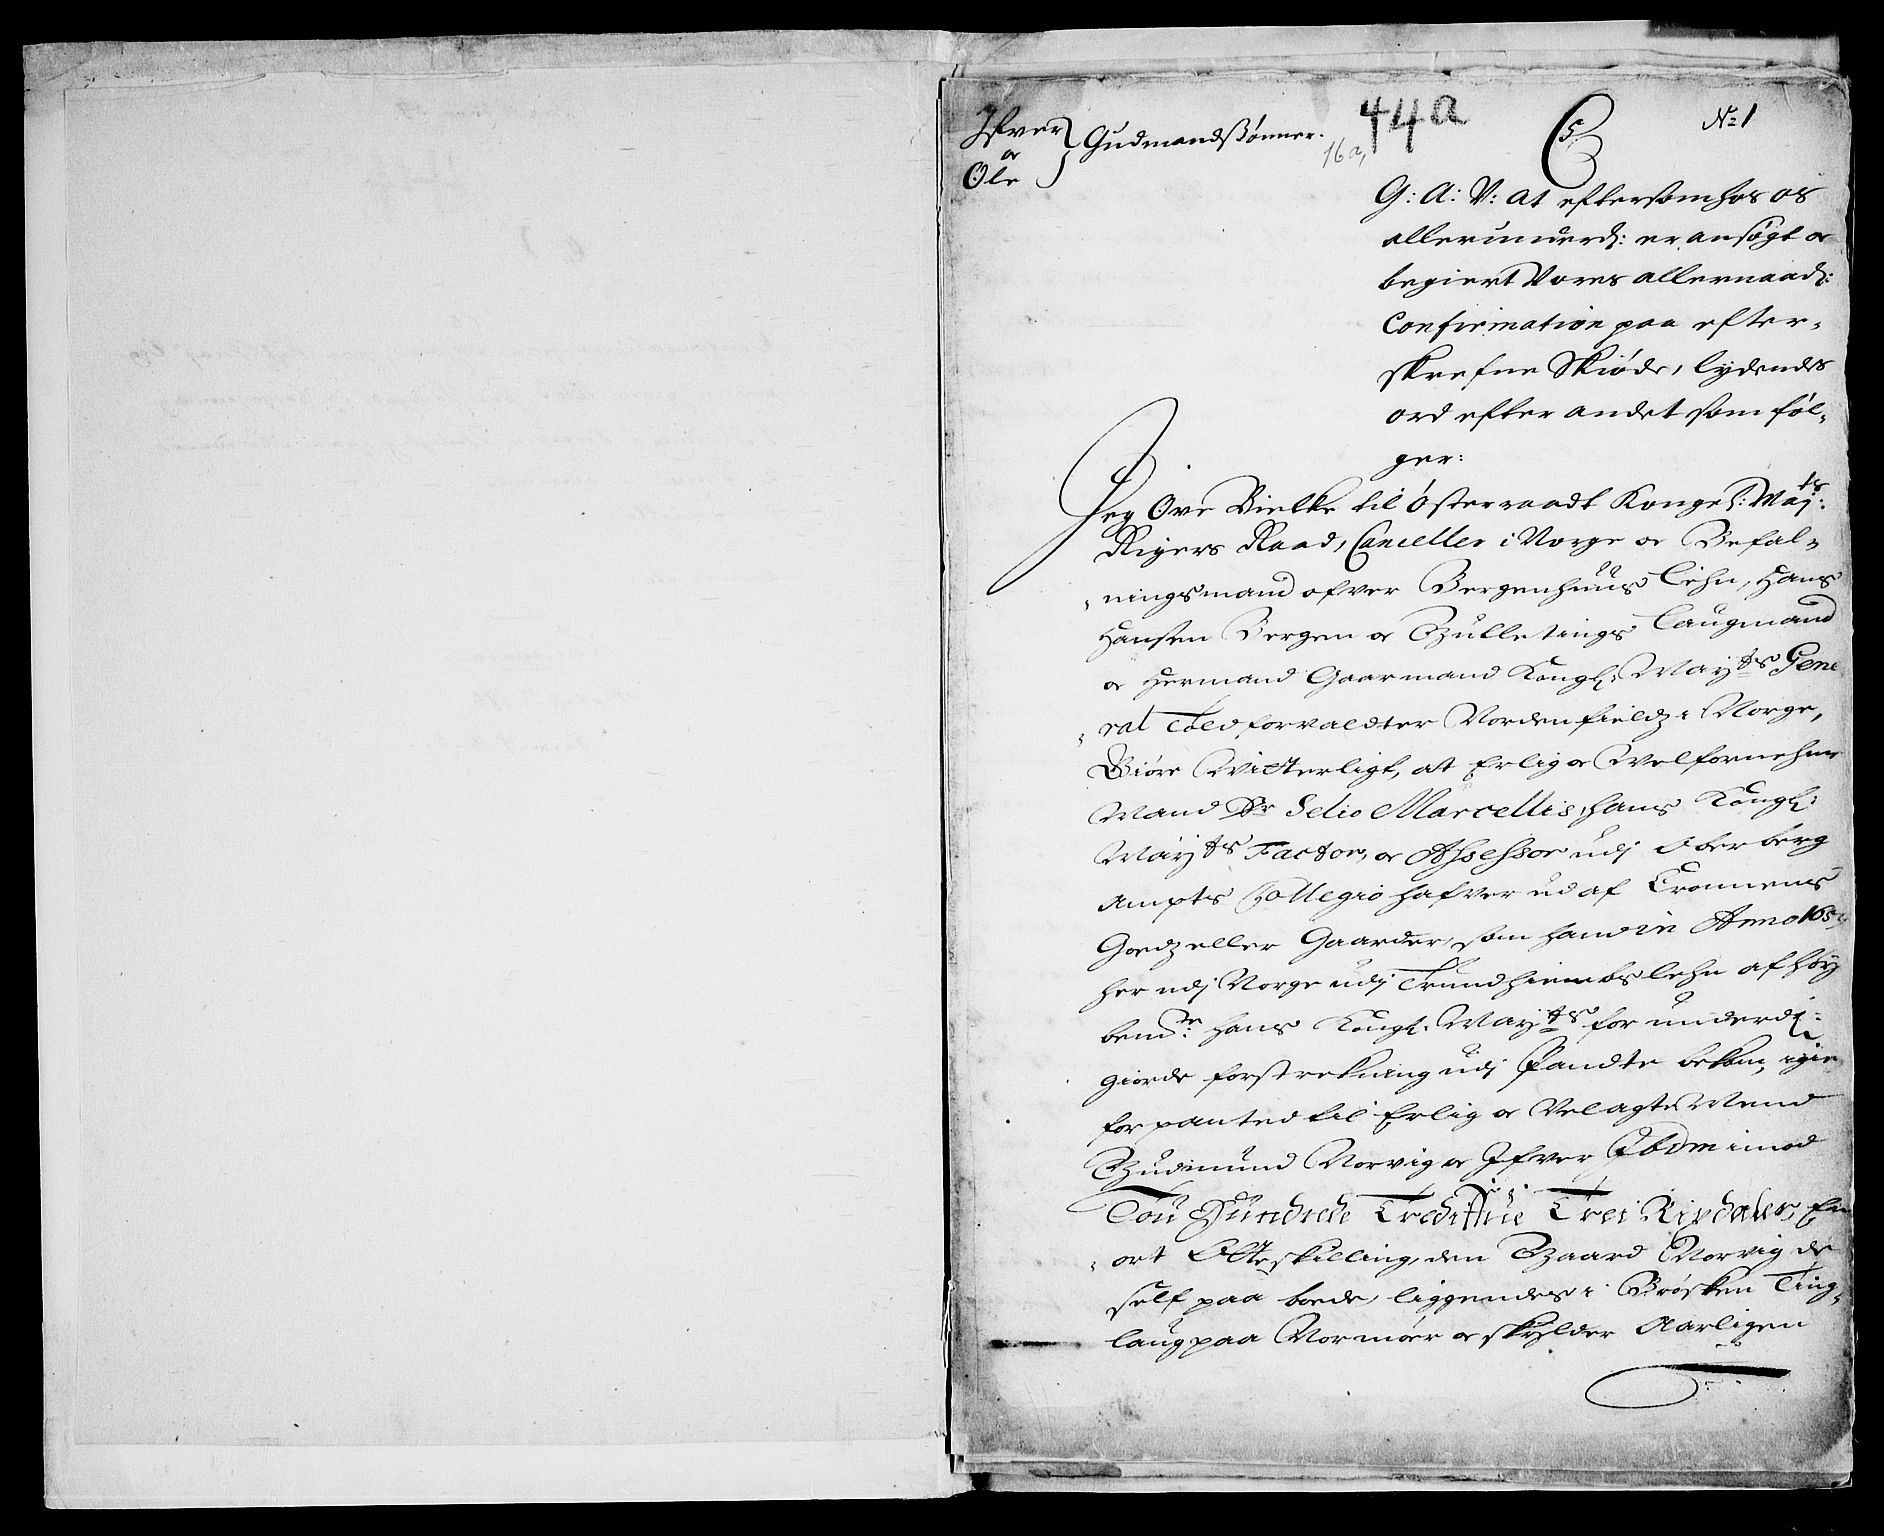 44a
No 1
Ifver
oc
Ole
Gudmandsønner.
16a,
C5
G: A: V: at eftersom hos os
allerunderd: er ansøgt oc
begiert Vores allernaad:
Confirmation paa efter-
skrefne Skiøde, lydendes
ord efter andet som føl-
ger:
Jeg Ove Bielke til Østeraadt Kongel: Maj:ts
Rigers Raad, Canceller i Norge oc Befal-
ningsmand ofver Bergenhuus Lehn, Hans
Hansen Bergen oc Gulletings Laugmand
oc Hermand Gaarmand Kongl: Mayts Gene
ral Toldforvaldter Nordenfieldz i Norge,
Giøre Vitterligt, at Erlig oc Velfornehme
Mand Sr Selio Marcellis, hans Kongl:
Mayts Factor, oc Assessor udj Oberberg
Ampts Collegio hafver ud af Cronnens
Goedz eller Gaarder, som hand in Anno 165
her udj Norge udj Trundhiembs lehn af høy
bemte: hans Kongl. Mayts for underd:
giorde forstrekning udj Pandte bekom, igien
forpanted til Erlig oc Velagte Mend
Gudmund Norvig oc Ifver Ibdm imod
Tou Hundrede Tredifflue Trei Rixdaler, En
ort Otte skilling, den Gaard Norvig de
self paa boede, liggendes i Brøsken Ting-
laug paa Normøer oc skylder Aarligen